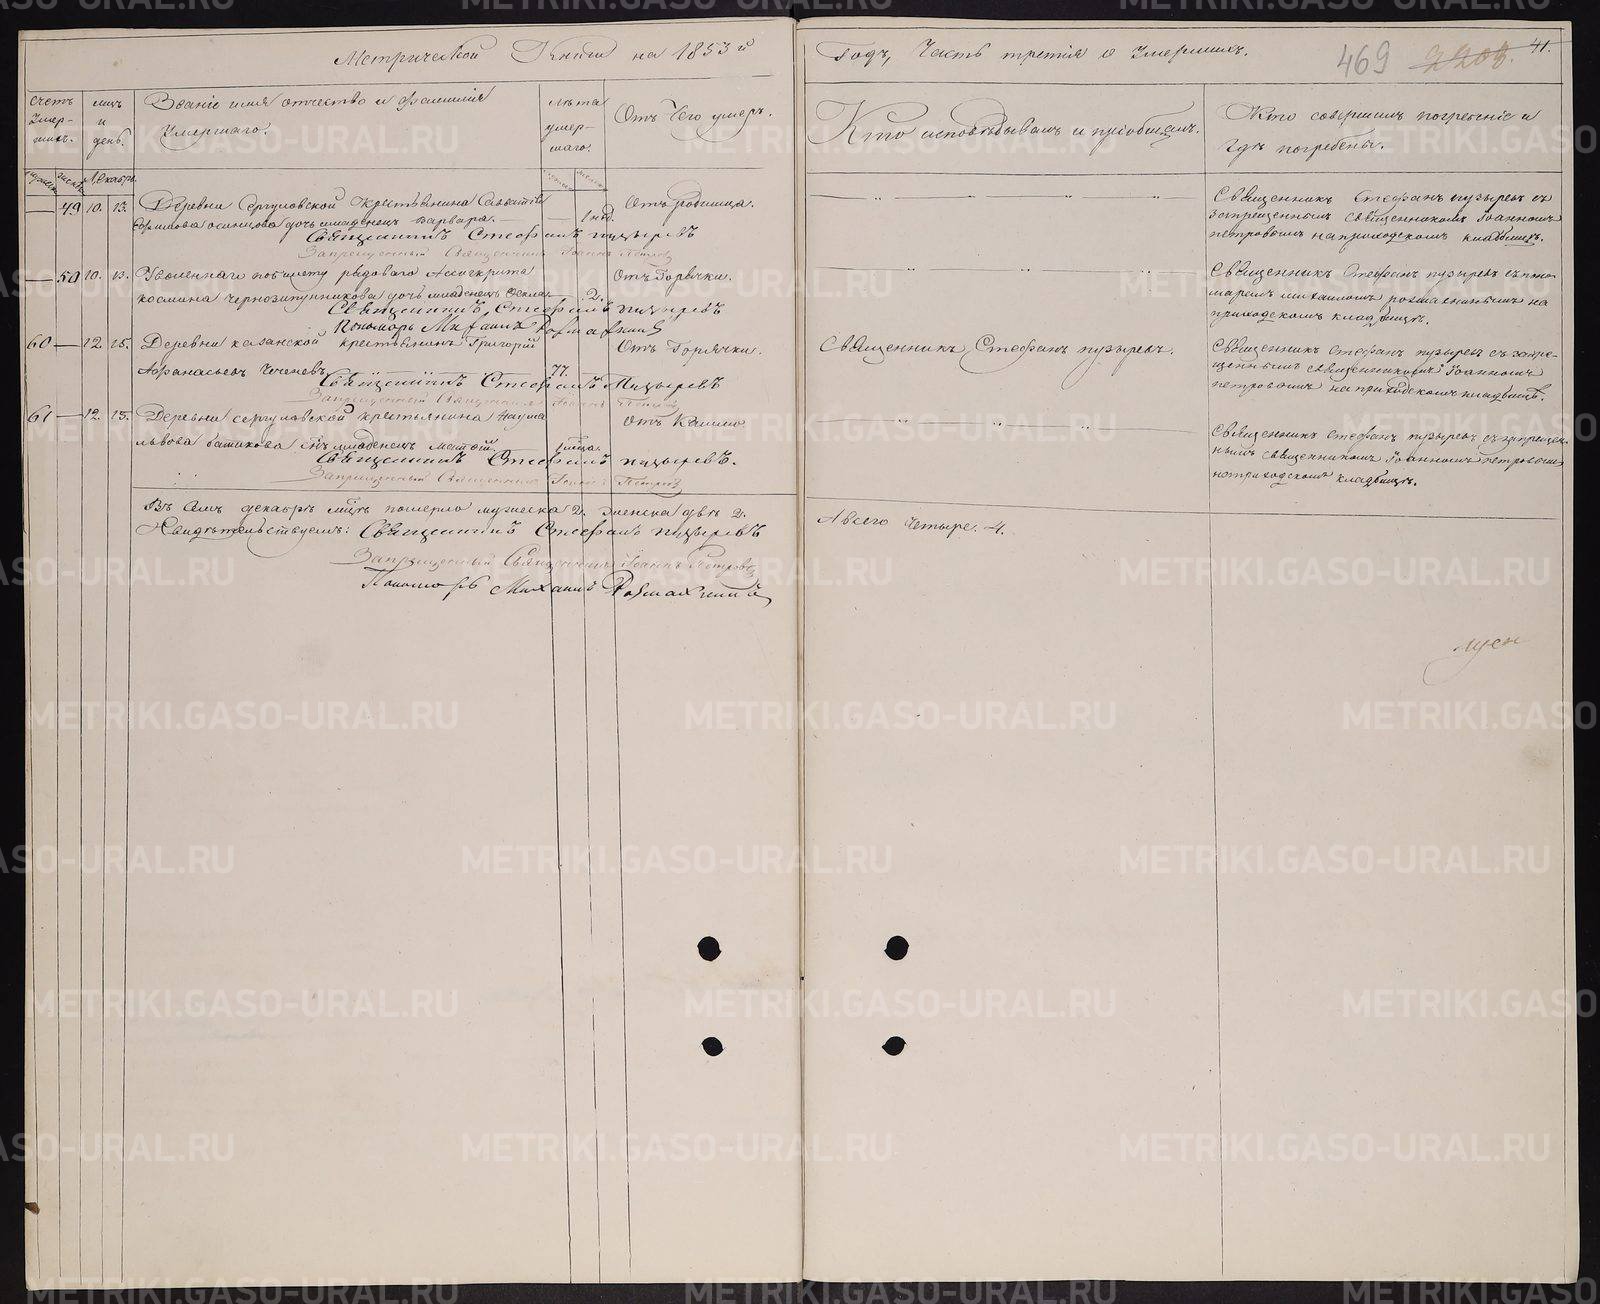 Метрической Книги на 1853 й
Счетъ Умер-шихъ.
мцъ и день.
Званіе имя отчество и фамилія Умершаго.
лѣта умер-шаго.
Отъ Чего умеръ.
Декабрь.
49 10. 13. Деревни Сергуловской Крестьянина Савватія
Ефимова Осинцова дочь младенец Варвара. 1 нед. Отъ Родимца.
Священникъ Стефанъ Пузыревъ
Запрещенный Священникъ Іоаннъ Петровъ
50 10. 13. Уволеннаго по билету рядоваго Ассигкрита
Космина Чернозипунникова дочь младенец Фекла. 2. Отъ Горячки.
Священникъ Стефанъ Пузыревъ
Пономарь Михаилъ
60 12 15. Деревни Казанской крестьянинъ Григорій
Афанасьевъ Чеченевъ 77. Отъ Горячки.
Священникъ Стефанъ Пузыревъ
Запрещенный Священникъ Іоаннъ Петровъ
61 12. 15. Деревни Сергуловской крестьянина Наума
Львова сынъ младенецъ Отъ Кашлю
Священникъ Стефанъ Пузыревъ.
Запрещенный Священникъ Іоаннъ Петровъ
Въ семъ декабрѣ мцѣ померло мужеска 2. женска двѣ 2.
Свидѣтельствуемъ: Священникъ Стефанъ Пузыревъ
Запрещенный Священникъ Іоаннъ Петровъ
Пономарь Михаилъ
годъ, Часть третія о Умершихъ.
469
41.
Кто исповѣдывалъ и пріобщалъ.
Кто совершалъ погребеніе и
гдѣ погребены.
Священникъ Стефанъ Пузыревъ съ
запрещеннымъ священникомъ Іоанномъ
Петровымъ на приходскомъ кладбищѣ.
Священникъ Стефанъ Пузыревъ съ поно-
маремъ Михаиломъ на
приходскомъ кладбищѣ.
Священникъ Стефанъ Пузыревъ.
Священникъ Стефанъ Пузыревъ съ запре-
щеннымъ священникомъ Іоанномъ
Петровымъ на приходскомъ кладбищѣ.
Священникъ Стефанъ Пузыревъ съ запрещен-
нымъ священникомъ Іоанномъ Петровымъ
на приходскомъ кладбищѣ.
А всего четыре. 4.
METRIKI.GASO-URAL.RU